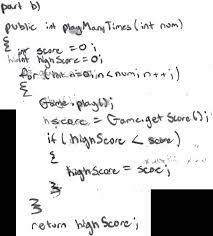 part b)
public int playManyTimes (int num)
{
int score = 0;
int highScore = 0;
for (int n=0; n<num; n++;)
{
Game.play();
score = Game.getScore();
if (highScore < score)
{
highScore = score;
}
}
return highScore;